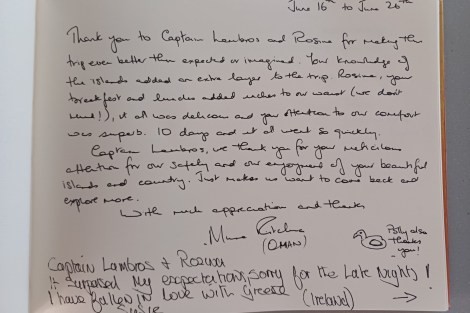 June 16th to June 26th
Thank you to Captain Lambros and Rosine for making the
trip even better then expected or imagined. Your knowledge of
the islands added an extra layer to the trip. Rosine, your
breakfast and lunches added inches to our waist (we don't
mind!), it all was delicous and your attention to our comfort
was superb. 10 days and it all went so quickly.
Captain Lambros, we thank you for your meticulous
attention for our safety and our enjoyment of your beautiful
islands and country. Just makes us want to come back and
explore more.
With much appreciation and thanks
(OMAN)
Polly also
thanks
you!
Captain Lambros &
It surpased my expectations, sorry for the Late Nights!
I have fallen in Love with Greece (Ireland)